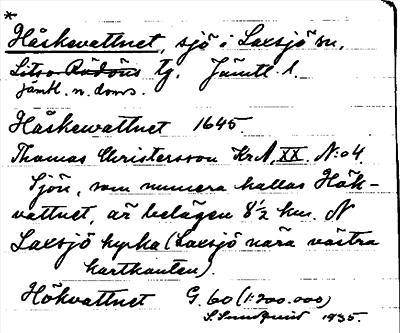 *
Håskevattnet, sjö i Laxsjö sn,
Litsor Rödöns tg. Jämtl. l.
Jämtl. n. doms.
Håskewattnet 1645.
Thomas Christersson KrA, XX. N:o 4.
Sjön, som numera kallas Hök-
vattnet, är belägen 8½ km. N
Laxsjö kyrka (Laxsjö nära västra
kartkanten).
Hökvattnet G. 60 (1:200.000)
S. Sundquist 1935.